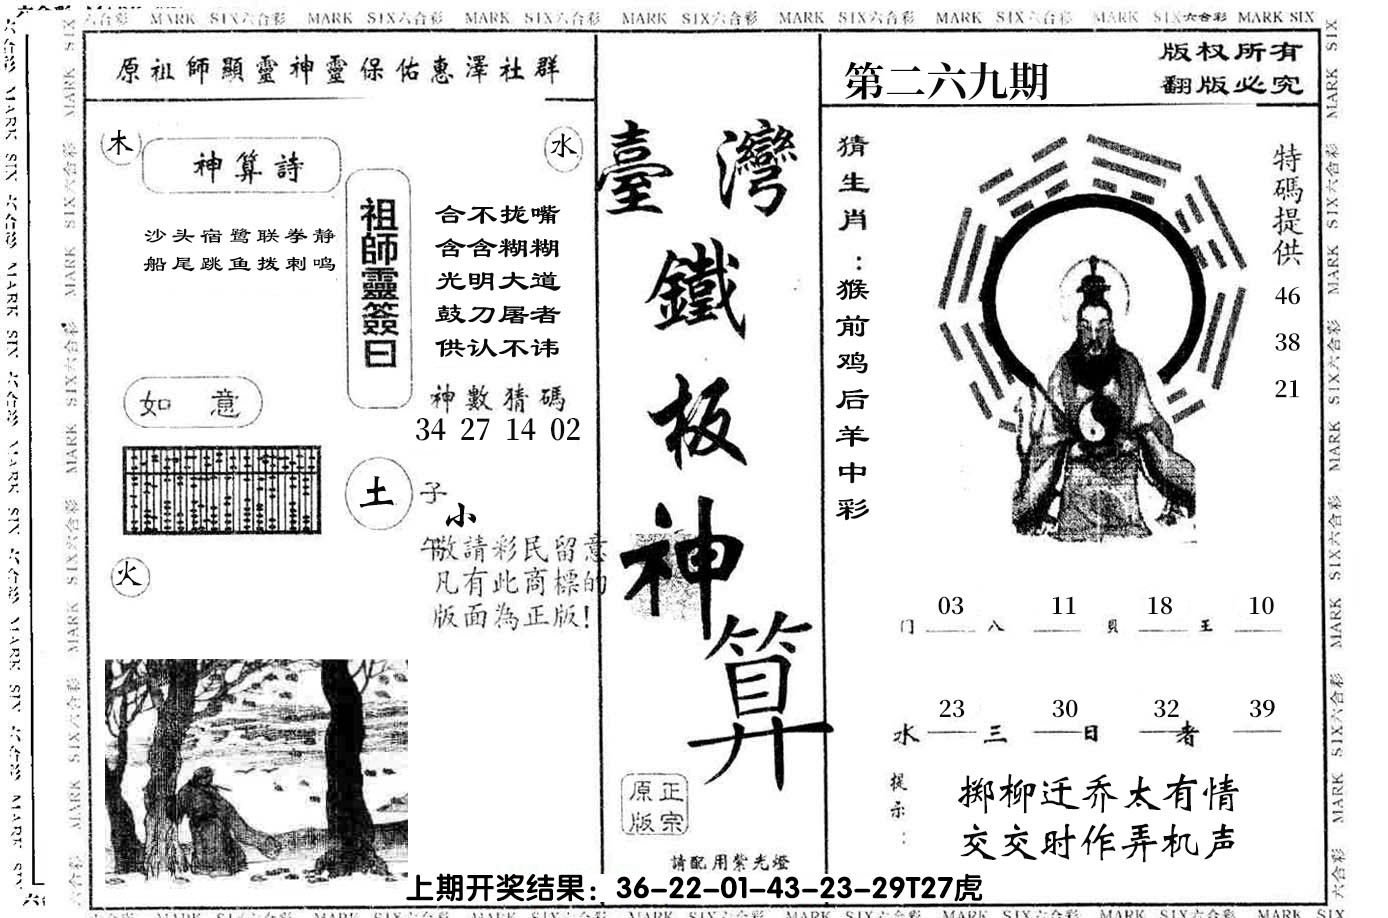 MARK SIX六合彩 MARK SIX六合彩 MARK SIX六合彩 MARK SIX六合彩 MARK SIX六合彩 MARK SIX六合彩 MARK SIX六合彩 MARK SIX
原祖師顯靈神靈保佑惠澤社群
木
水
神算詩
沙头宿鹭联拳静
船尾跳鱼拨刺鸣
祖師靈簽曰
合不拢嘴
含含糊糊
光明大道
鼓刀屠者
供认不讳
神數猜碼
34 27 14 02
如意
土
子
小
午敬請彩民留意
凡有此商標的
版面為正版!
火
臺灣
鐵
板
神
算
正宗
原版
請配用紫光燈
第二六九期
版权所有
翻版必究
猜生肖:猴前鸡后羊中彩
特碼提供
46
38
21
03 11 18 10
门 八 贝 王
23 30 32 39
水 三 日 者
提示:
掷柳迁乔太有情
交交时作弄机声
上期开奖结果：36-22-01-43-23-29T27虎